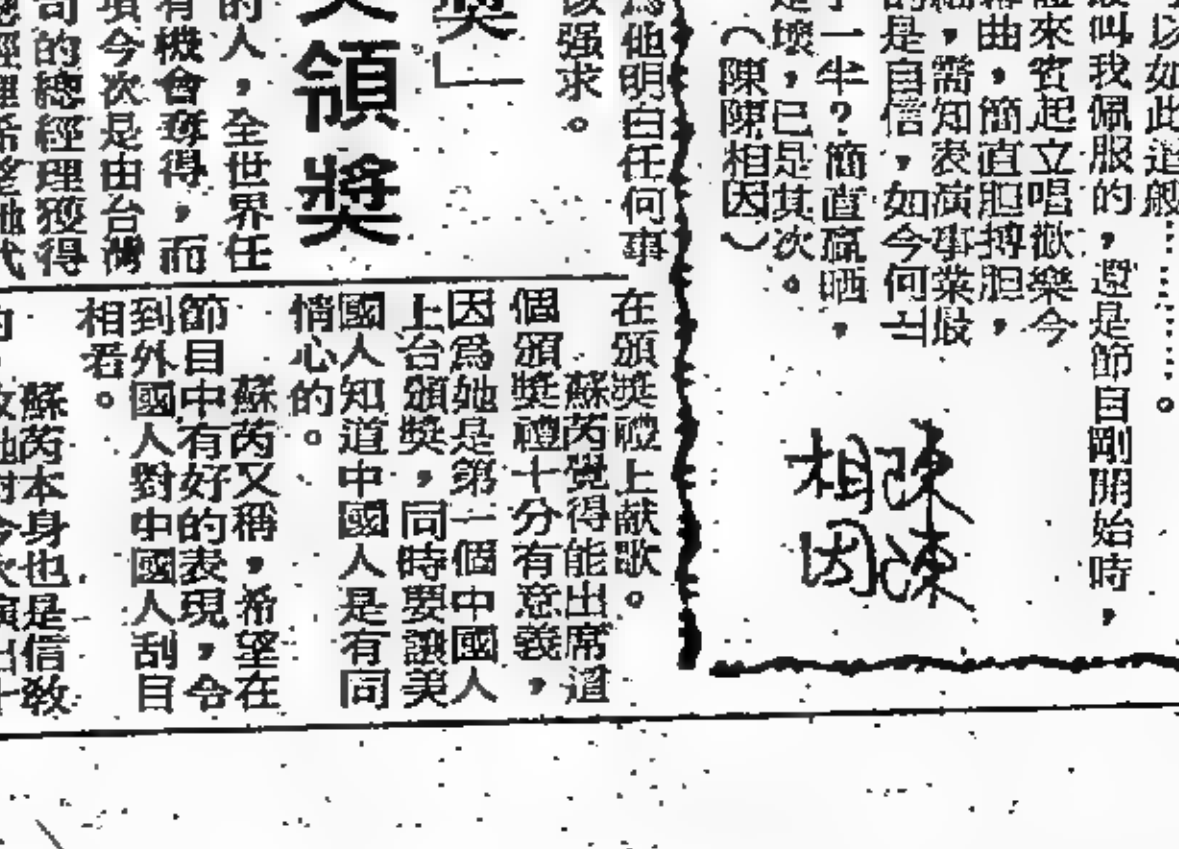 以如此道般⋯⋯⋯。
叫我佩服的，還是節目剛開始時，
來賓起立唱歡樂今
曲，簡直胆搏胆，
，需知表演事業最
是自信，如今何止
一半？簡直贏晒，
是壞，已是其次。
（陳陳相因）
陳陳
相因
為他明白任何事
該强求。
獎」
領獎
的人，全世界任
有機會奪得，而
項今次是由台灣
司的總經理獲得
經理希望她代
在頒獎禮上献歌。
蘇芮覺得能出席這
個頒獎禮十分有意義，
因為她是第一個中國人
上台頒獎，同時要讓美
國人知道中國人是有同
情心的。
蘇芮又稱，希望在
節目中有好的表現，令
到外國人對中國人刮目
相看。
蘇芮本身也是信教
的，故她對今次演出十